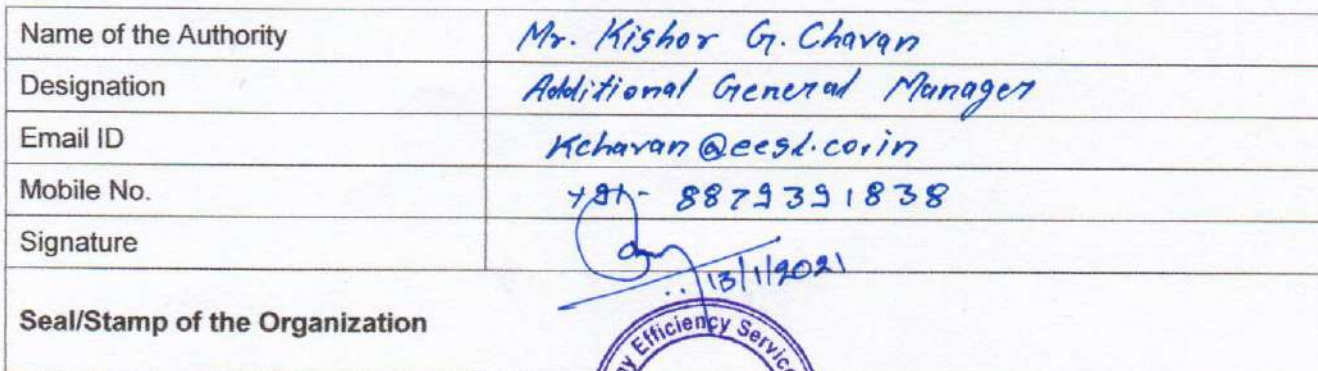 Name of the Authority Mr. Kishor G. Chavan
Designation Additional General Manager
Email ID Kchavan@eesl.co.in
Mobile No. +91- 8879391838
Signature
13/1/2021
Seal/Stamp of the Organization
Efficiency Service